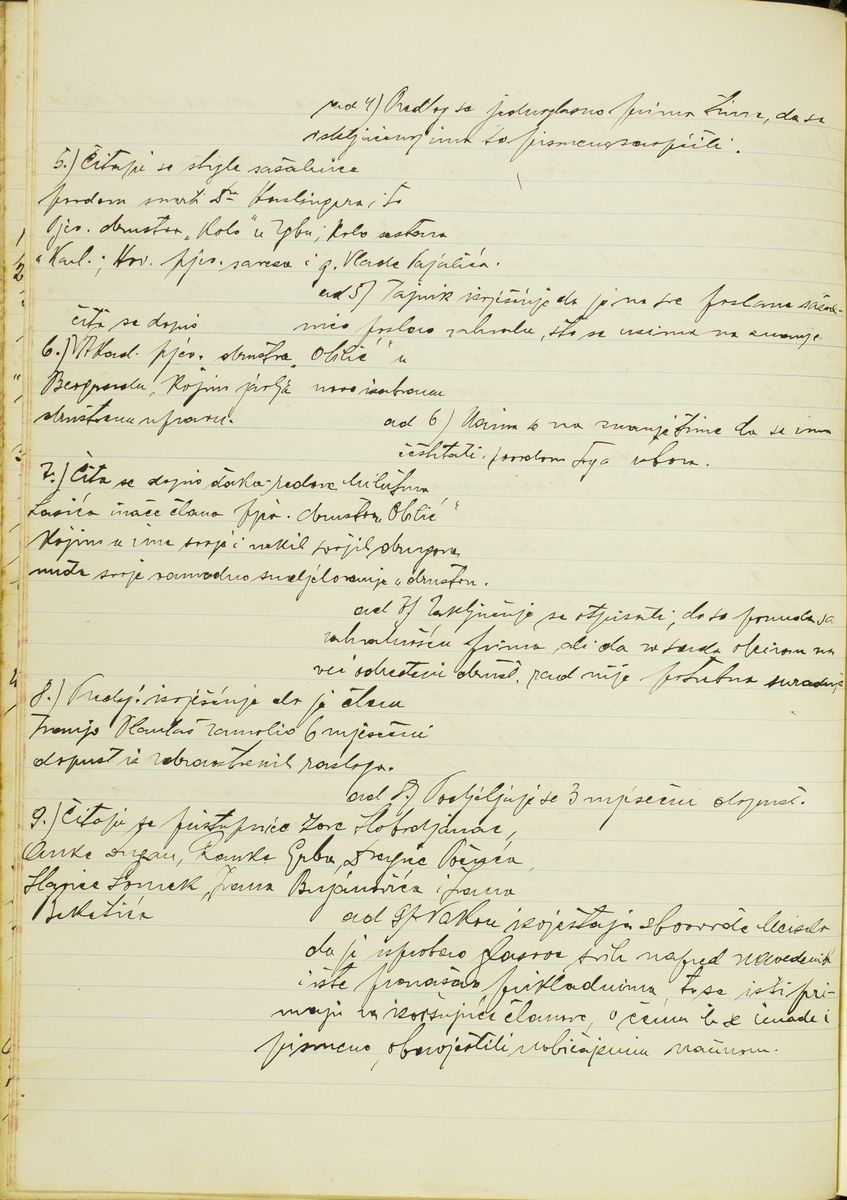 ad 4) Predlog se jednoglasno prima time, da se
isključenoj ima to pismeno saopćiti.
5.) Čitaju se stigle sažalnice
povodom smrti Dra Haslingera i to
Pjev. društva „Kolo" u Zgbu; Kolo sestara
u Karl.; Hrv. pjev. saveza i g. Vlade
ad 5) Tajnik izvješćuje da je na sve poslane sažal-
nice poslao zahvalu, što se uzima na znanje
čita se dopis
6.) Akad. pjev. društva „Obilić" u
Beogradu, kojim javlja novoizabranu
društvenu upravu.
ad 6) Uzima se na znanje time da se ima
čestitati povodom toga izbora.
7.) Čita se dopis đaka-redova Milutina
inače člana pjev. društva „Obilić"
kojim u ime svoje i nekih svojih drugova
nudi svoje sudjelovanje u društvu.
ad 7) Zaključuje se otpisati, da se ponuda sa
zahvalnošću prima ali da za sada obzirom na
već određeni društ. rad nije potrebna suradnja
8.) Predsj. izvješćuje da je član
Franjo zamolio 6 mjesečni
dopust iz zdravstvenih razloga.
ad 8.) Podjeljuje se 3 mjesečni dopust.
9.) Čitaju se pristupnice Zore
Anke Dugan, Ranka Grba, Dragice
Slavice Tomek, Ivana Bujanovića i Ivana
Beketića
ad 9) Nakon izvještaja zborovođe
da je isprobao glasove svih napred navedenih
i iste pronašao prikladnima to se isti pri-
maju za izvršujuće članove, o čemu ih se imade i
pismeno obavjestiti uobičajenim načinom.